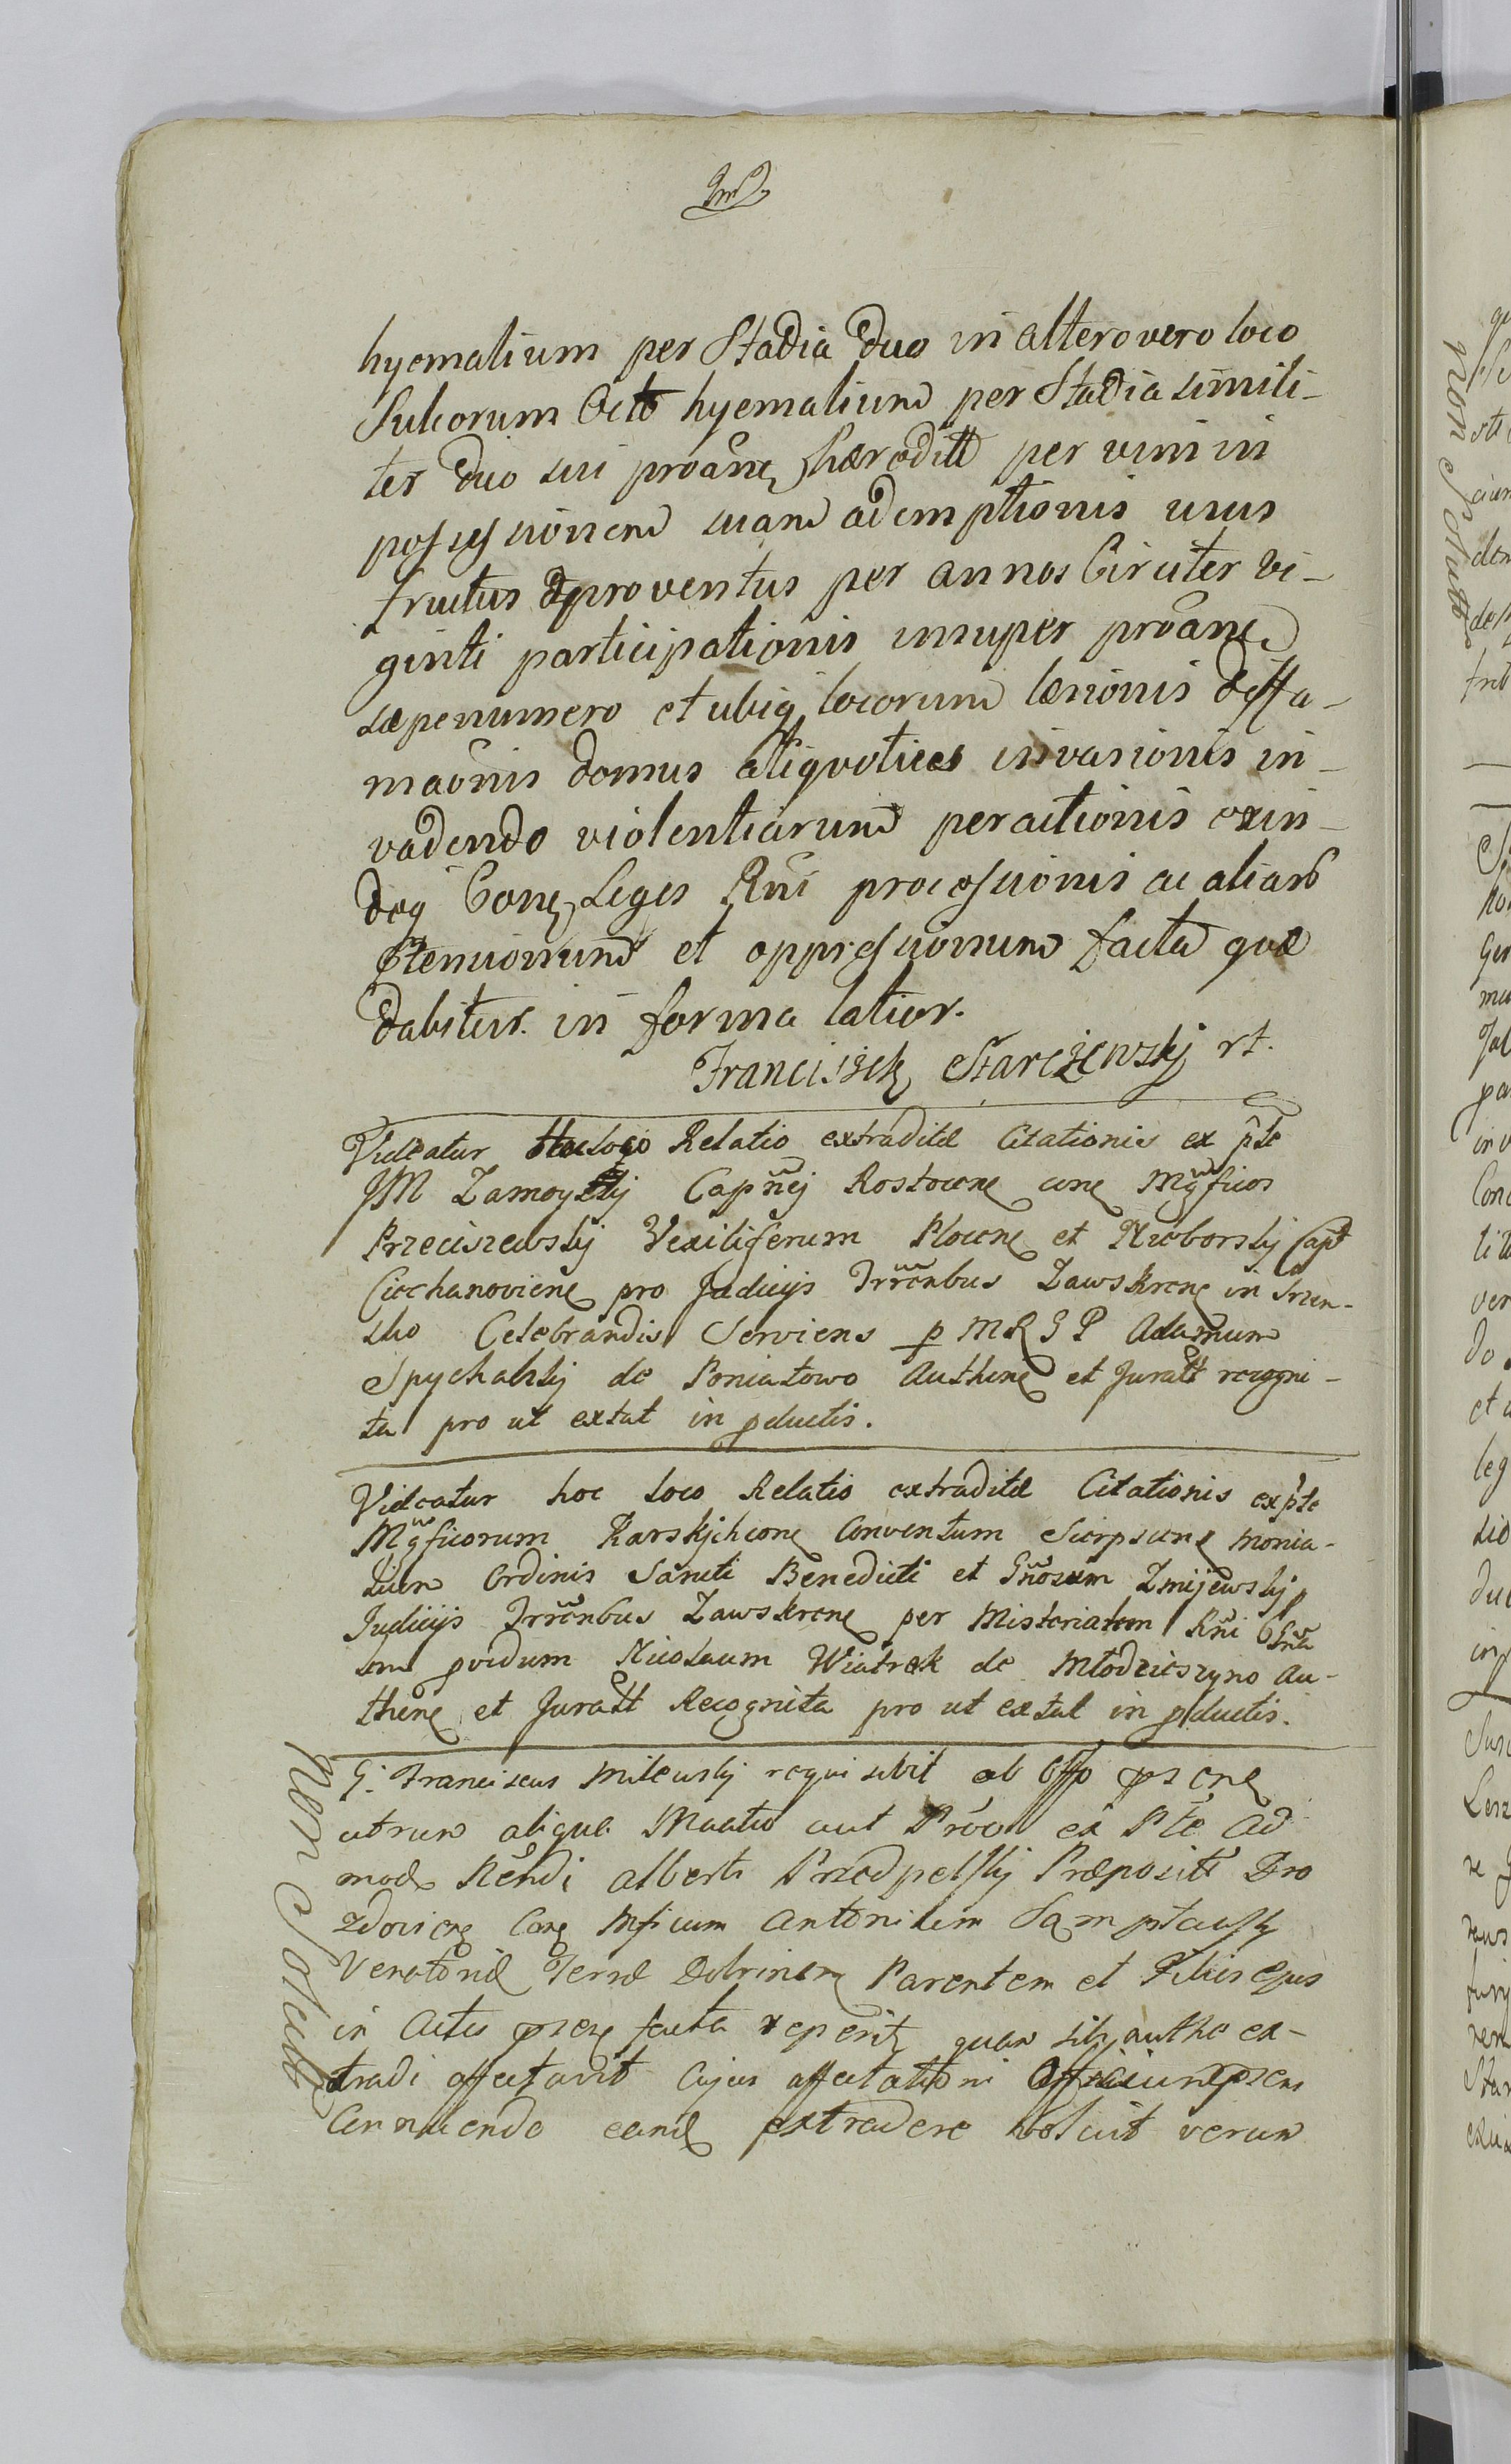 hyemalium per Stadia duo in altero vero loco
Sulcorum Octo hyemalium per Stadia simili-
ter duo sui proāne hæreditt per vim in
possessionem suam ademptionis usus
fructus proventus per annos Circiter vi-
ginti participationis insuper proāne
sæpenumero et ubiq locorum læsionis diffa-
maōnis domus aliquoties invasionis in-
vadendo violentiarum peractionis exin-
deq Conn Leges Rni processionis ac aliarum
et oppressionum facta quæ
dabitur in forma latior.
Franciszek Starczewskj rt.
Videatur Hocloco Relatio extraditæ Citationis ex pte
JM Zamoyskj Capnej Rostocene cone Mgficos
Przeciszewskj Vexiliferum Plocene et Nieborskj Capt
Ciechanoviene pro Judicijs Trrēnbus Zawskrene in Srzen-
sko Celebrandis Serviens p M R G P Adamum
Spychalskj de Poniatowo Authene et Juratt recogni-
ta pro ut extat in pductis.
Videatur hoc loco Relatio extraditæ Citationis ex pte
Mgficorum Karskjch cone Conventum Sierpscene monia-
lium Ordinis Sancti Benedicti et Gnosum Zmijewskj p
Judicijs Trrēnbus Zawskrene per Misterialem Rni Gnra
lem pvidum Nicolaum Wiatrak de Młodzieszyno au-
thene et Juratt Recognita pro ut extat in pductis.
G. Franciscus Milewskj requisivit ab Offo psene
utrum aliqua Maatio aut Prōcu ex Pte ad
mod Rēndi Alberti Przedpelskj Præpositi Dro
zdoviene Cone Mficum Antonium
Venatoris Terræ Dobrinen Parentem et Filios ejus
in Actis psene facta reperitz quam sibj authe ex-
tradi affectavit Cujus affectationi Officium psens
Annuendo eand extradere voluit verum
Non Solutt